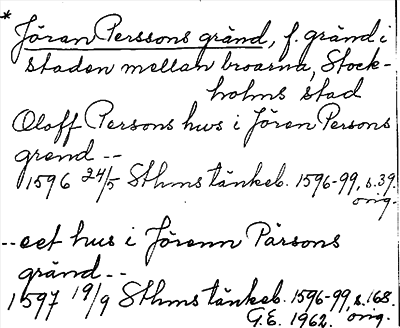 * Jöran Perssons gränd, f. gränd i
staden mellan broarna, Stock-
holms stad
Oloff Persons hws i Jören Persons
grend --
1596 24/5 Sthms tänkeb. 1596-99, s. 39.
orig.
-- eet hus i Jörenn Pärsons
gränd --
1597 19/9 Sthms tänkeb. 1596-99, s. 168.
G.E. 1962. orig.